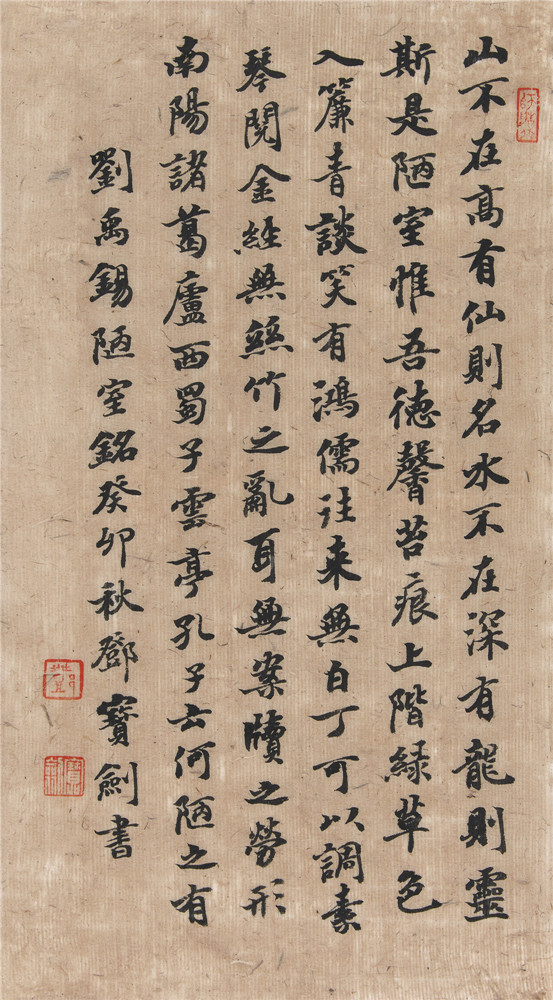 山不在高有仙則名水不在深有龍則靈
斯是陋室惟吾德馨苔痕上階緑草色
入簾青談笑有鴻儒往来無白丁可以調素
琴閲金經無絲竹之亂耳無案牘之勞形
南陽諸葛廬西蜀子雲亭孔子云何陋之有
劉禹錫陋室銘癸卯秋鄧寶劍書